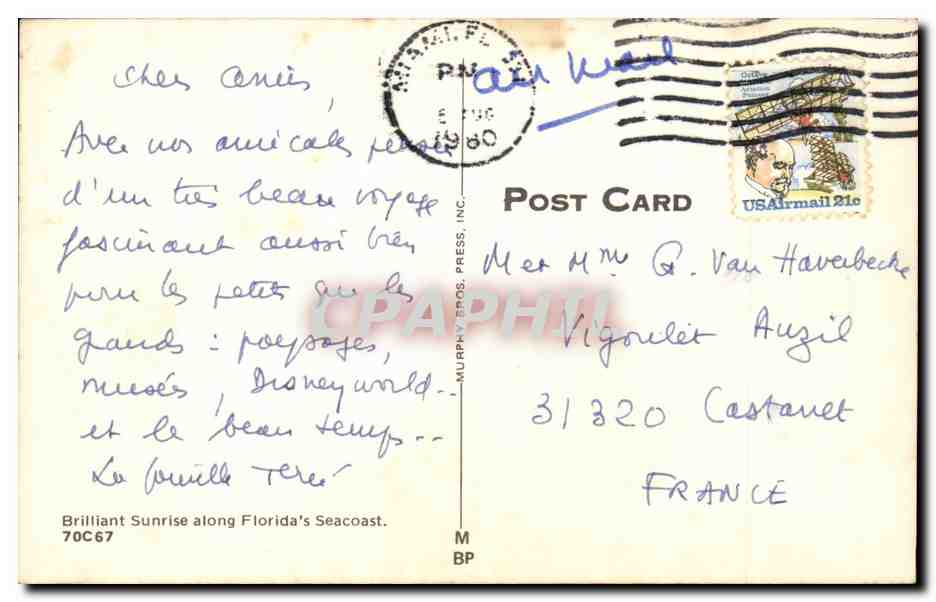 Cher amis,
Avec nos amicales pensée
d'un très beau voyage
fascinant aussi bien
pour les petits que les
grands : paysages,
musés, Disneyworld..
et le beau temps..
La famille
Brilliant Sunrise along Florida's Seacoast.
70C67
MURPHY BROS. PRESS, INC.
M
BP
MIAMI, FL
PM
AUG
1980
air mail
USAirmail 21c
POST CARD
M et Mme G. Van Haverbecke
Vigoulet Auzil
31320 Castanet
FRANCE
CPAPHIL